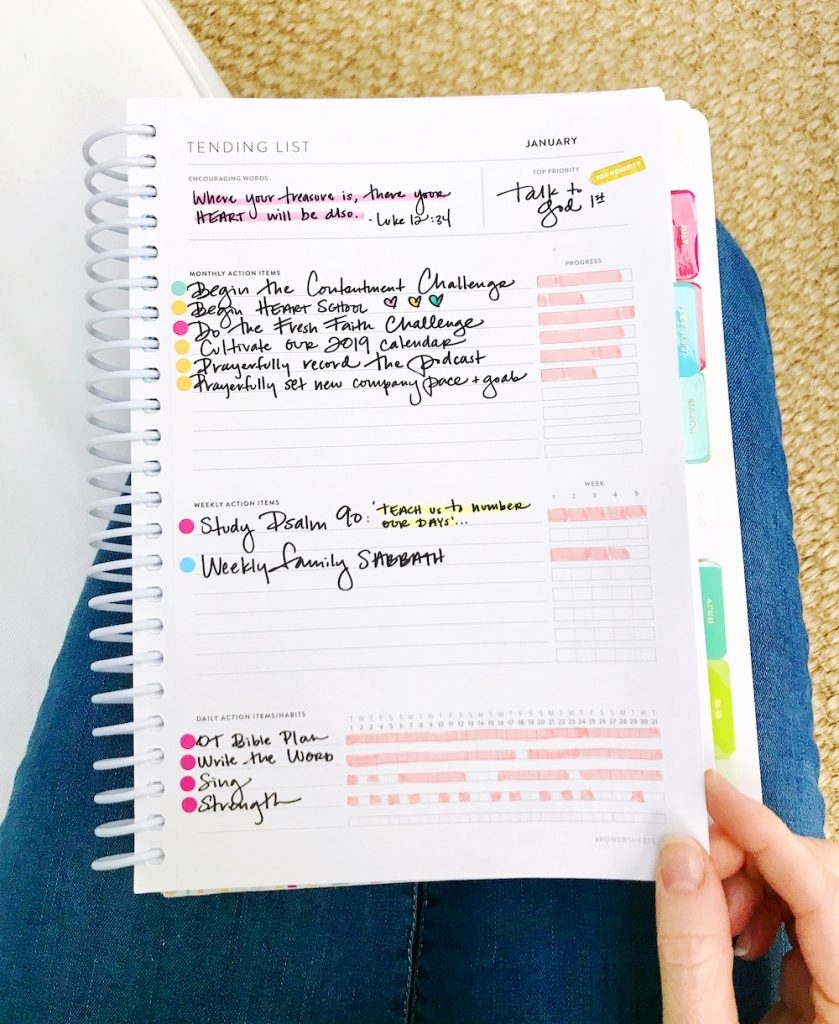 TENDING LIST
JANUARY
ENCOURAGING WORDS
Where your treasure is, there your
HEART will be also. - Luke 12:34
TOP PRIORITY
TOP PRIORITY
Talk to
God 1st
MONTHLY ACTION ITEMS
PROGRESS
Begin the Contentment Challenge
Begin HEART SCHOOL
Do the Fresh Faith Challenge
Cultivate our 2019 calendar
Prayerfully record the podcast
Prayerfully set new company pace + goals
WEEKLY ACTION ITEMS
WEEK
1 2 3 4 5
Study Psalm 90: 'TEACH US to number
OUR DAYS'...
Weekly family SABBATH
DAILY ACTION ITEMS/HABITS
T W T F S S M T W T F S S M T W T F S S M T W T F S S M T W T
1 2 3 4 5 6 7 8 9 10 11 12 13 14 15 16 17 18 19 20 21 22 23 24 25 26 27 28 29 30 31
OT Bible Plan
Write the WORD
Sing
Strength
#POWERSHEETS
JULY
FEBRUARY
MARCH
APRIL
MAY